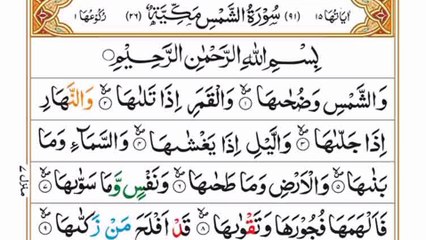 اٰیَاتُهَا ۱۵ (۹۱) سُوْرَةُ الشَّمْسِ مَكِّیَّةٌ (۲۶) رُكُوْعُهَا ۱
بِسْمِ اللهِ الرَّحْمٰنِ الرَّحِیْمِ
وَالشَّمْسِ وَضُحٰىهَا ۝۱ وَالْقَمَرِ اِذَا تَلٰىهَا ۝۲ وَالنَّهَارِ
اِذَا جَلّٰىهَا ۝۳ وَالَّیْلِ اِذَا یَغْشٰىهَا ۝۴ وَالسَّمَآءِ وَمَا
بَنٰىهَا ۝۵ وَالْاَرْضِ وَمَا طَحٰىهَا ۝۶ وَنَفْسٍ وَّمَا سَوّٰىهَا ۝۷
فَاَلْهَمَهَا فُجُوْرَهَا وَتَقْوٰىهَا ۝۸ قَدْ اَفْلَحَ مَنْ زَكّٰىهَا ۝۹
منزل ۷